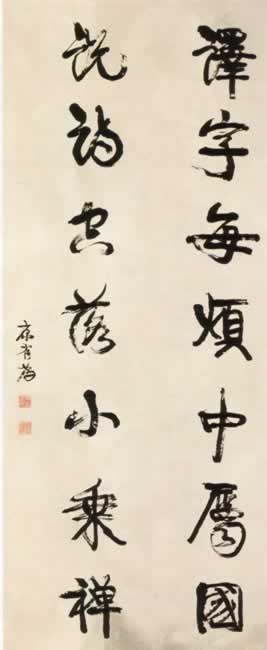 譯字每煩中屬國
說詩空落小乘禪
康有為